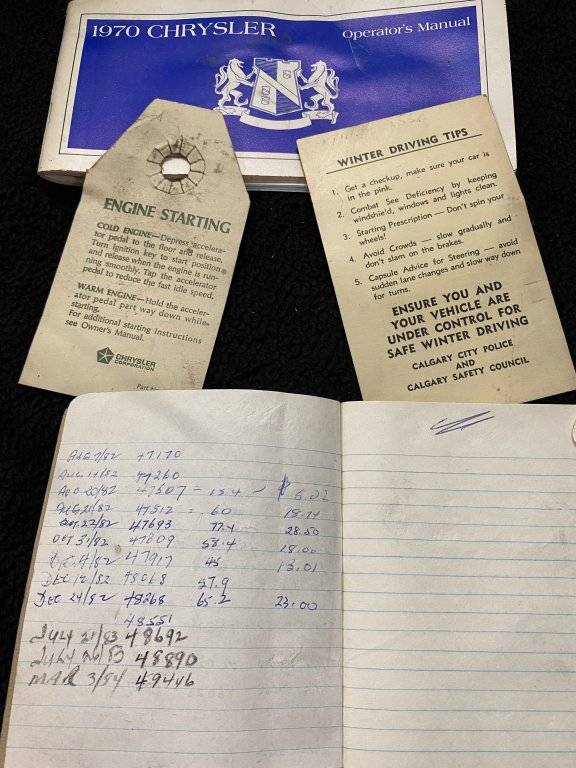 1970 CHRYSLER
Operator's Manual
ENGINE STARTING
COLD ENGINE—Depress accelera-
tor pedal to the floor and release.
Turn ignition key to start position
and release when the engine is run-
ning smoothly. Tap the accelerator
pedal to reduce the fast idle speed.
WARM ENGINE—Hold the acceler-
ator pedal part way down while
starting.
For additional starting instructions
see Owner's Manual.
CHRYSLER
CORPORATION
Part
WINTER DRIVING TIPS
1. Get a checkup, make sure your car is
in the pink.
2. Combat See Deficiency by keeping
windshield, windows and lights clean.
3. Starting Prescription — Don't spin your
wheels!
4. Avoid Crowds — slow gradually and
don't slam on the brakes.
5. Capsule Advice for Steering — avoid
sudden lane changes and slow way down
for turns.
ENSURE YOU AND
YOUR VEHICLE ARE
UNDER CONTROL FOR
SAFE WINTER DRIVING
CALGARY CITY POLICE
AND
CALGARY SAFETY COUNCIL
AUG 7/82 47170
AUG 14/82 47260
AUG 20/82 47507 - 15.4 - $ 6.02
AUG 21/82 47512 = 60
OCT 22/82 47693 77.4 28.50
OCT 31/82 47809 53.4 18.00
47917 45 13.01
DEC 12/82 48068 57.9
DEC 24/82 48268 65.2 23.00
48551
JULY 21/83 48692
JULY 48890
MAR 3/84 49446